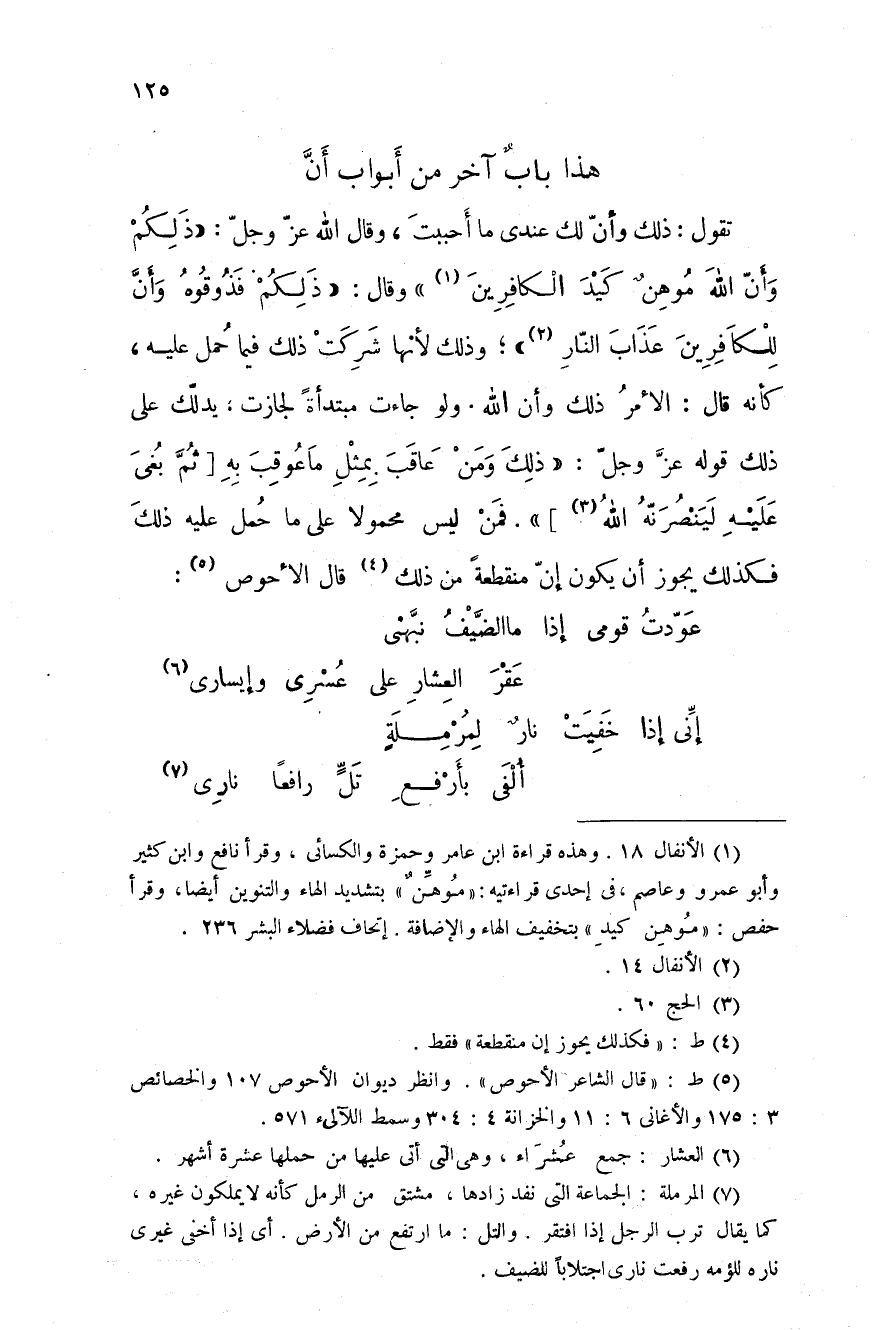 ١٢٥
هذا بابٌ آخر من أَبواب أَنَّ
تقول : ذلك وأنّ لك عندى ما أَحببتَ ، وقال الله عزّ وجلّ : «ذَلِكُمْ
وَأَنّ اللهَ مُوهِنٌ كَيْدَ الْكافِرِينَ (١) » وقال : « ذَلِكُمْ فَذُوقُوهُ وَأَنَّ
لِلْكاَفِرِينَ عَذَابَ النّارِ (٢)» ؛ وذلك لأنها شَرِكَتْ ذلك فيما حُمل عليه ،
كأنه قال : الأمرُ ذلك وأن الله . ولو جاءت مبتدأةً لجازت ، يدلّك على
ذلك قوله عزَّ وجلّ : « ذلِكَ وَمَنْ عَاقَبَ بِمِثْلِ مَاعُوقِبَ بِهِ [ ثُمَّ بُغىَ
عَلَيْهِ لَيَنْصُرَنّهُ اللهُ (٣) ] » . فمَنْ ليس محمولا على ما حُمل عليه ذلكَ
فكذلك يجوز أن يكون إنّ منقطعةً من ذلك (٤) قال الأحوص (٥) :
عَوّدتُ قومى إذا ماالضَّيْفُ نبَّهنى
عَقْرَ العِشارِ على عُسْرِى وإيسارى(٦)
إنِّى إذا خَفِيَتْ نارٌ لِمُرْمِلَةٍ
أُلْفَى بأَرْفعِ تَلٍّ رافعًا نارِى (٧)
(١) الأنفال ١٨ . وهذه قراءة ابن عامر وحمزة والكسائى ، وقرأ نافع وابن كثير
وأبو عمرو وعاصم ،فى إحدى قراءتيه :«مُوهِّنٌ» بتشديد الهاء والتنوين أيضا، وقرأ
حفص : «مُوهِن كيدِ » بتخفيف الهاء والإضافة . إتحاف فضلاء البشر ٢٣٦ .
(٢) الأنفال ١٤ .
(٣) الحج ٦٠ .
(٤) ط : « فكذلك يجوز إن منقطعة » فقط .
(٥) ط : «قال الشاعر الأحوص» . وانظر ديوان الأحوص ١٠٧ والخصائص
٣ : ١٧٥ والأغانى ٦ : ١١ والخزانة ٤ : ٣٠٤ وسمط اللآلىء ٥٧١ .
(٦) العشار : جمع عُشَرَاء ، وهى التى أتى عليها من حملها عشرة أشهر .
(٧) المرملة : الجماعة التى نفد زادها ، مشتق من الرمل كأنه لايملكون غيره ،
كما يقال ترب الرجل إذا افتقر . والتل : ما ارتفع من الأرض . أى إذا أخفى غيرى
ناره للؤمه رفعت نارى اجتلاباً للضيف .